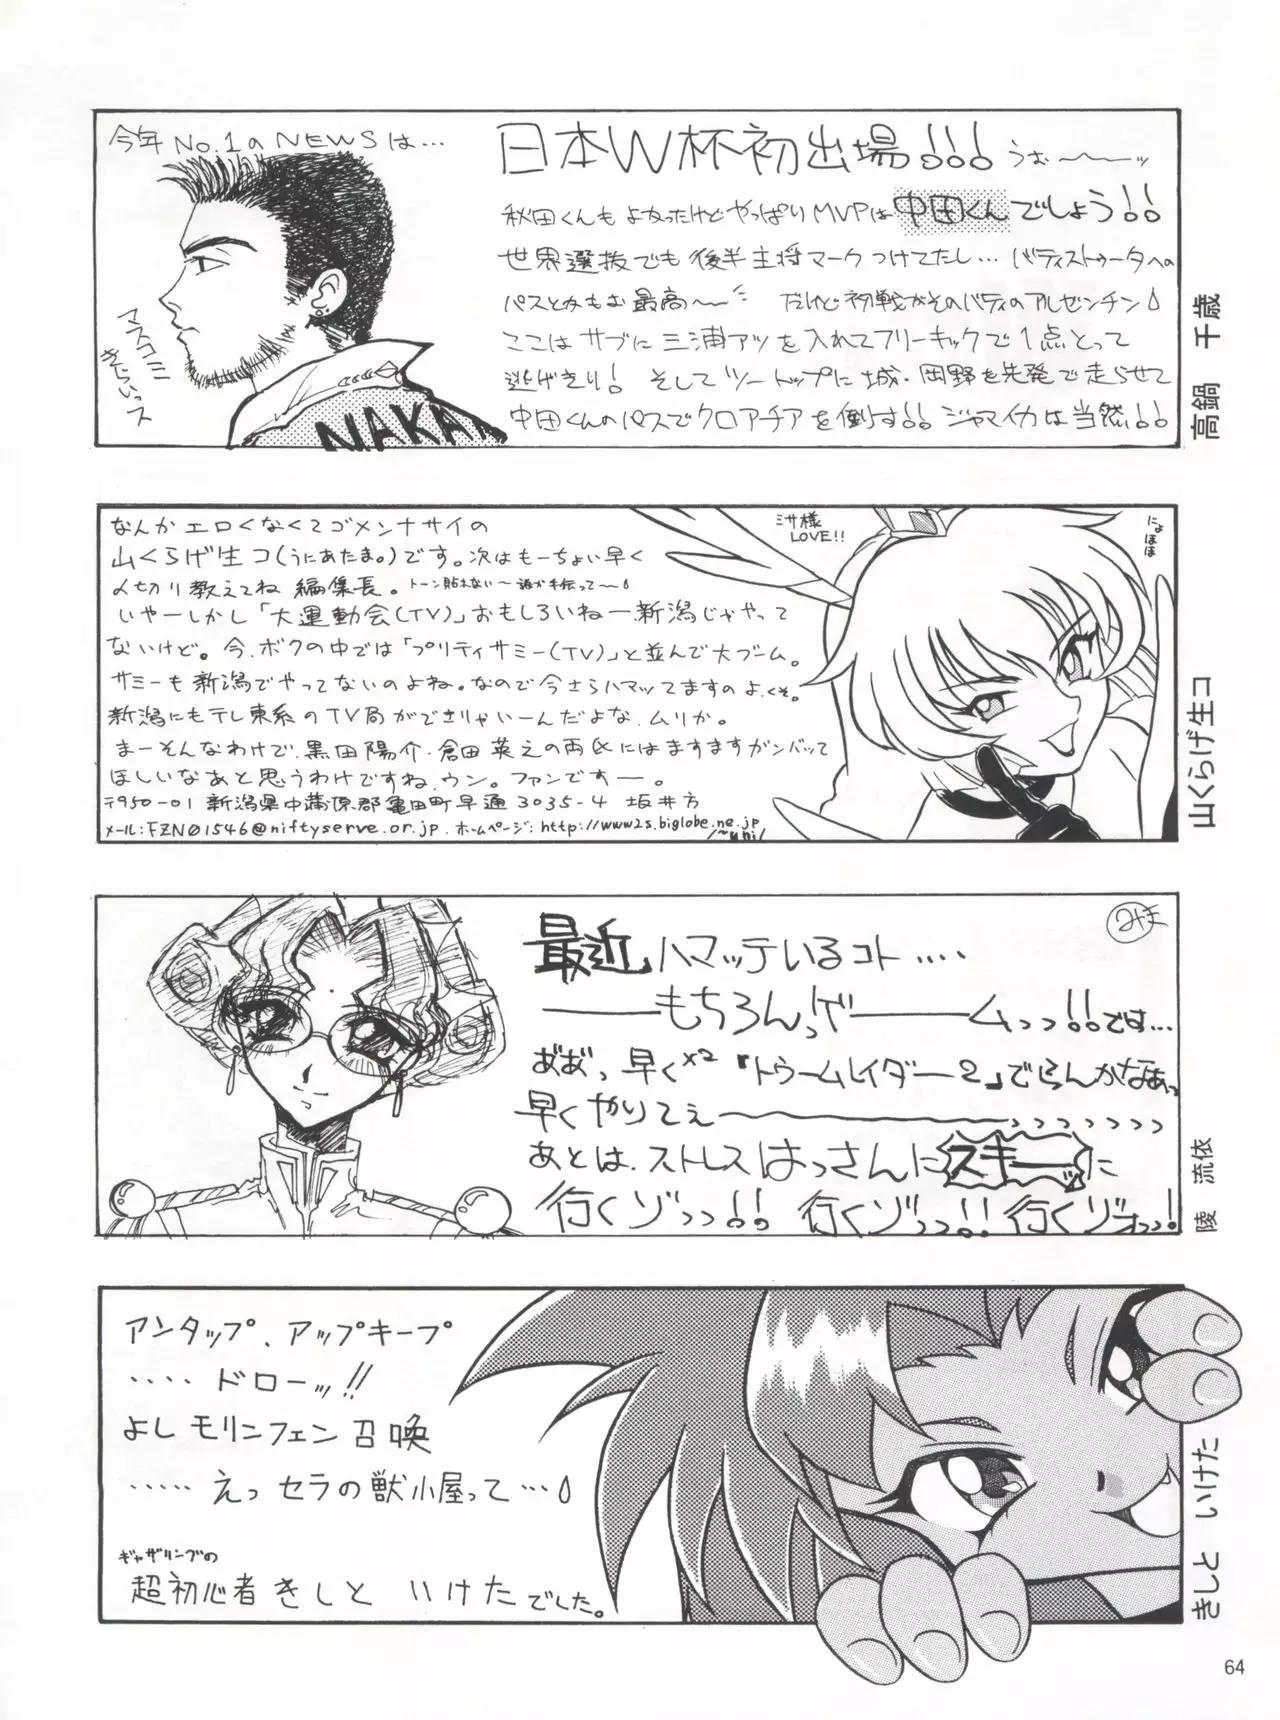 今年No.1のNEWSは…
日本W杯初出場!!! うお〜〜〜ッ
秋田くんもよかったけどやっぱりMVPは中田くんでしょう!!
世界選抜でも後半主将マークつけてたし…バティストゥータへの
パスとかもお最高〜〜 だけど初戦がそのバティのアルゼンチン
ここはサブに三浦アツを入れてフリーキックで1点とって
逃げきり! そしてツートップに城・岡野を先発で走らせて
中田くんのパスでクロアチアを倒す!! ジャマイカは当然!!
マスコミ
きらいっス
NAKA
高鍋 千歳
なんかエロくなくてゴメンナサイの
山くらげ生コ(うにあたま。)です。次はもーちょい早く
〆切り教えてね 編集長。トーン貼れない〜誰か手伝って〜
いやーしかし「大運動会(TV)」おもしろいねー.新潟じゃやって
ないけど。今、ボクの中では「プリティサミー(TV)」と並んで大ブーム。
サミーも新潟でやってないのよね。なので今さらハマッてますのよ.くそ。
新潟にもテレ東系のTV局ができりゃいーんだよな.ムリか。
まーそんなわけで、黒田陽介・倉田英之の両氏にはますますガンバッて
ほしいなあと思うわけですね、ウン。ファンですー。
〒950-01 新潟県中蒲原郡亀田町早通3035-4 坂井方
メール:FZN01546@niftyserve.or.jp.ホームページ:http://www2s.biglobe.ne.jp
/~uni/
ミサ様
LOVE!!
にょほほ
山くらげ生コ
最近ハマッテいるコト‥‥
——もちろんっゲ———ムっっ!!です…
あ゛あ゛っ早く×2『トゥームレイダー2』でらんかなぁっ
早くやりてぇ〜〜〜っっっっっっっ
あとは、ストレスはっさんにスキーッに
行くゾっっっ!! 行くゾっっ!! 行くゾォっっ!
陵 流依
アンタップ、アップキープ
‥‥‥ドローッ!!
よしモリンフェン召喚
‥‥‥えっセラの獣小屋って…
ギャザリングの
超初心者きしと いけたでした。
きしと いけた
64